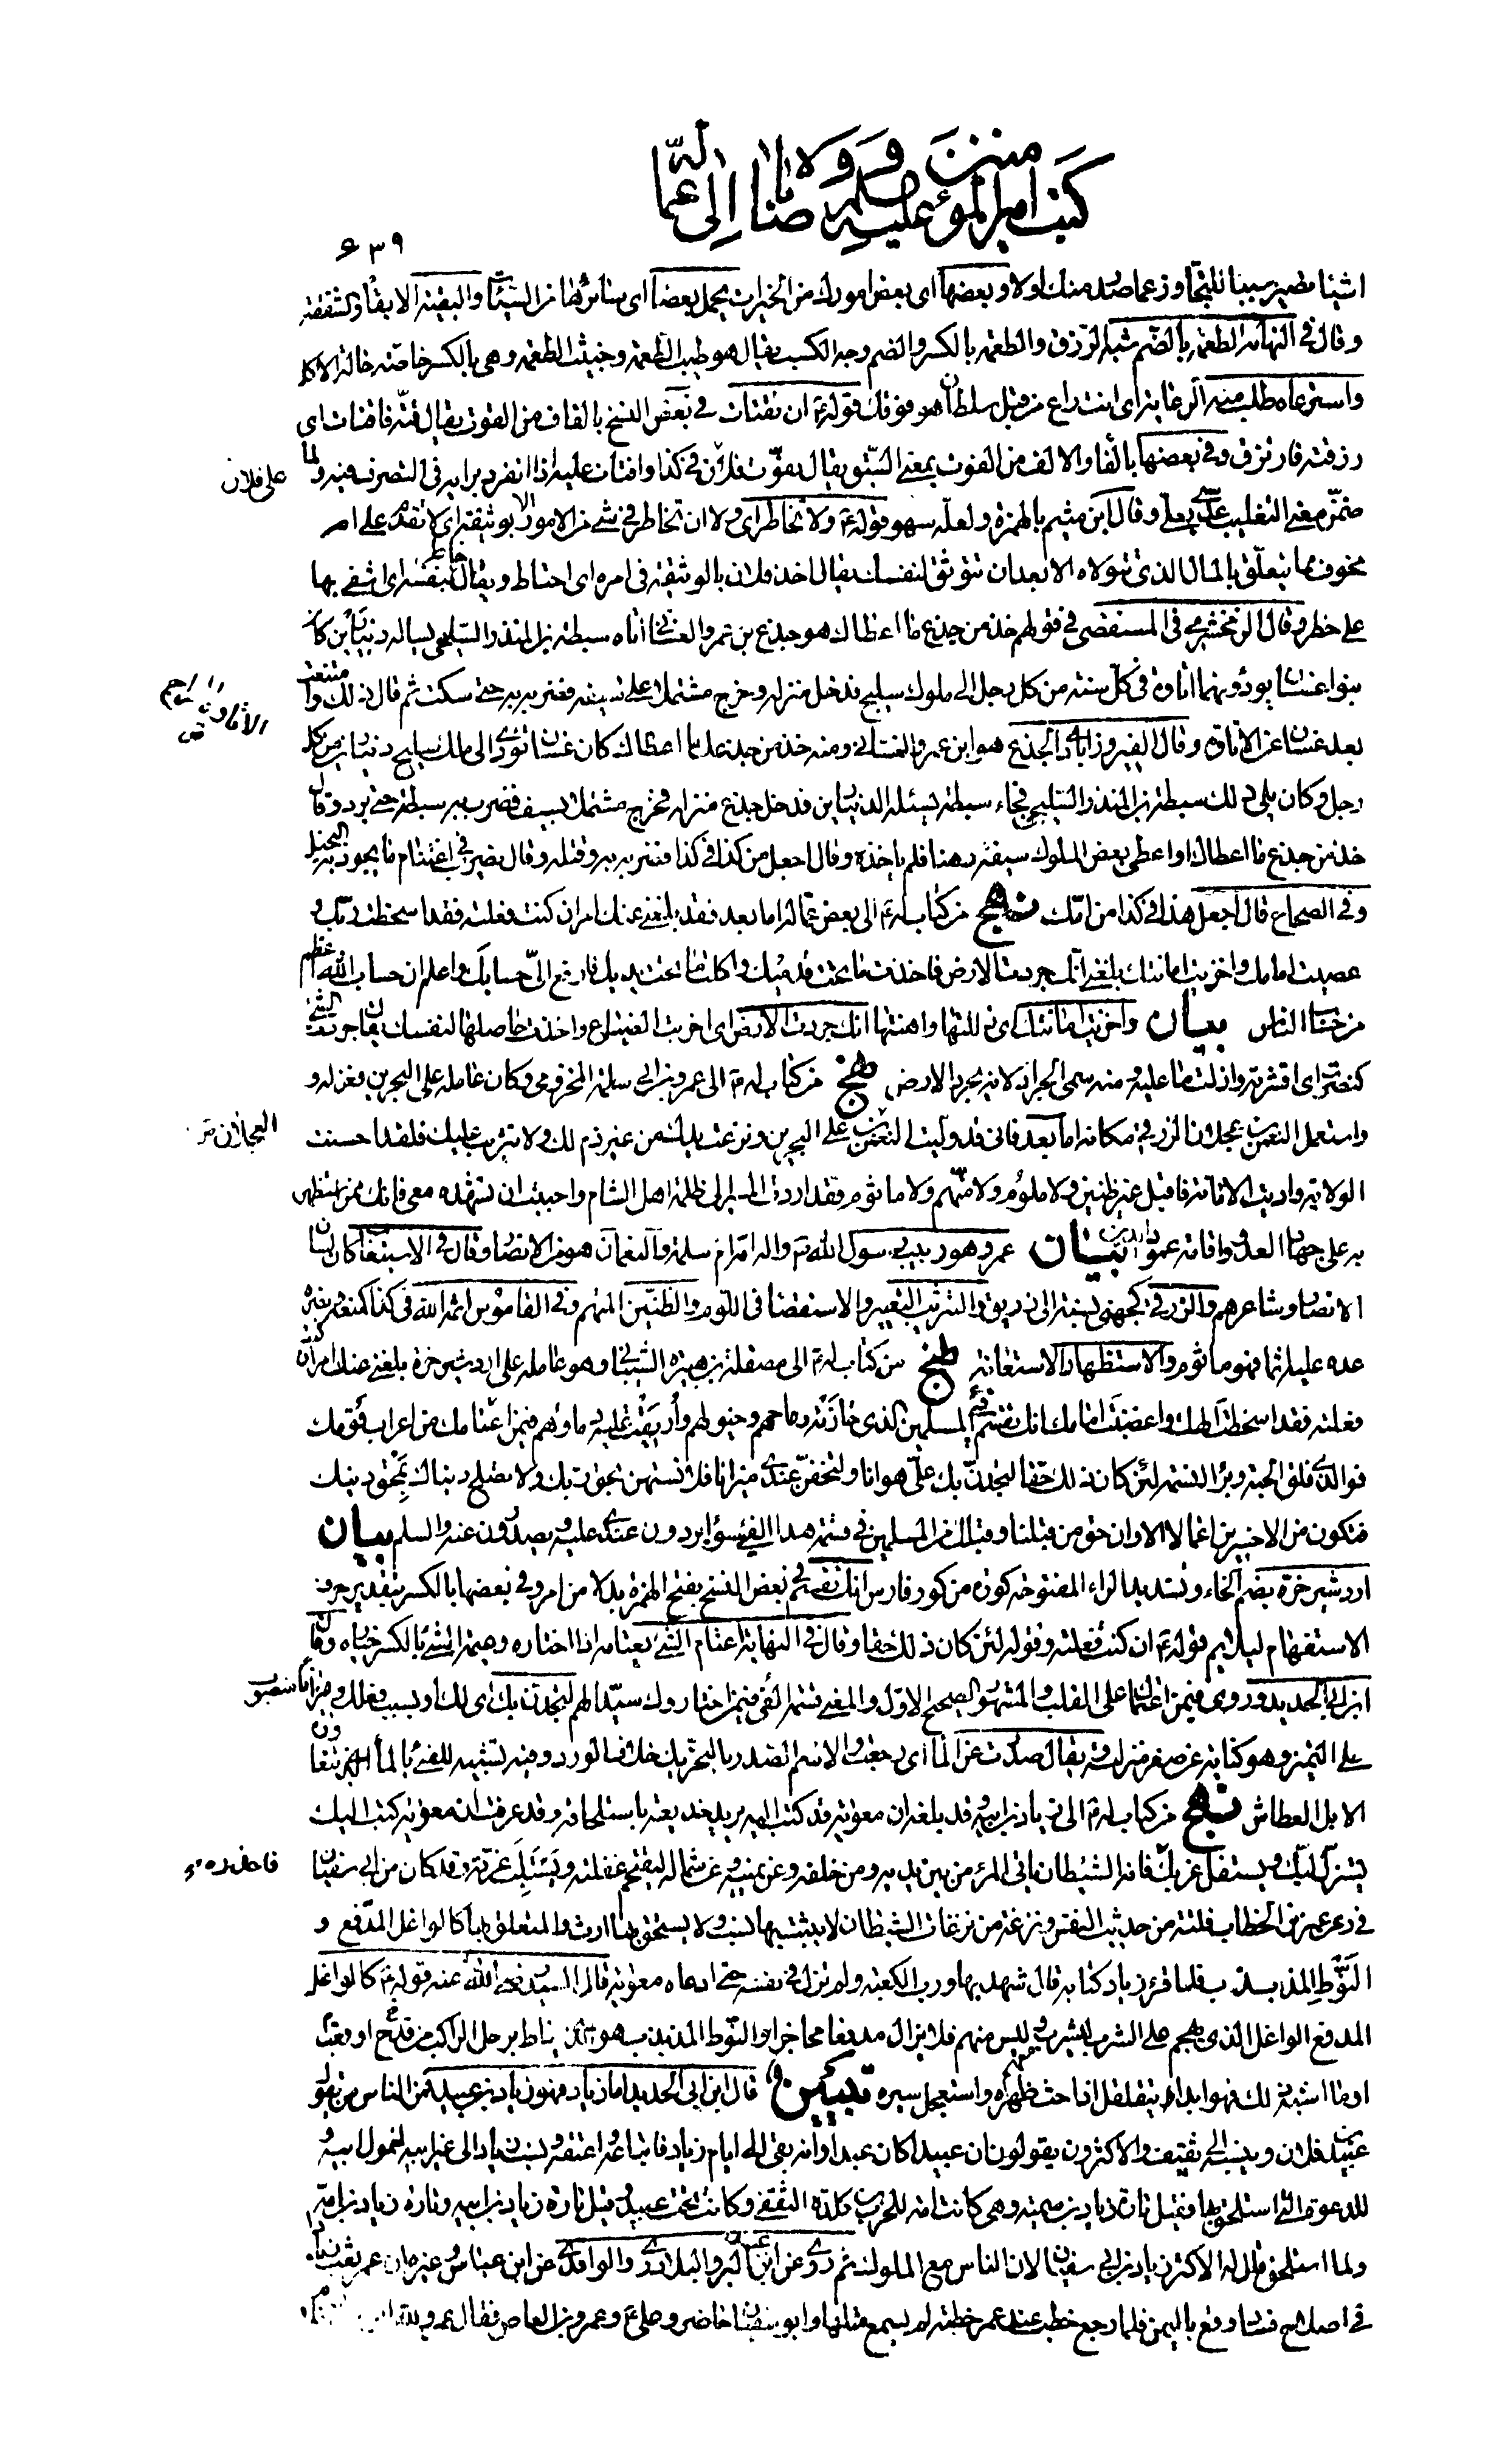 كتب امير المؤمنين صلوات الله عليه ووصاياه الى عماله
٦٣٩
اشيا تصير سببا للتجاوز عما صدر منك اولا وبعضها اى بعض امورك من الخيرات يحمل بعضا اى سائرها من السيئات والبقية الابقاء والشفقة
وقال فى النهاية الطعمة بالضم شبه الرزق والطعمة بالكسر والضم وجه الكسب يقال هو طيب الطعمة وخبيث الطعمة وهى بالكسر خاصة حالة الاكل
واسترعاه طلب منه الرعاية اى انت راع من قبل سلطان هو فوقك قوله ع ان تقتات فى بعض النسخ بالقاف من القوت يقال قته فاقتات اى
رزقته فارتزق وفى بعضها بالفاء والالف من الفوت بمعنى السبق يقال تفوت فلان على فلان فى كذا وافتات عليه اذا انفرد برايه فى التصرف فيه ولما
ضمن معنى التغليب عدى بعلى وقال ابن ميثم بالهمزة ولعله سهو قوله ع ولا تخاطر اى ولا ان تخاطر فى شئ من الامور الا بوثيقة اى لا تقدم على امر
مخوف مما يتعلق بالمال الذى تتولاه الا بعد ان تتوثق لنفسك يقال اخذ فلان بالوثيقة فى امره اى احتاط ويقال خاطر بنفسه اى اشفى بها
على خطر وقال الزمخشرى فى المستقصى فى قولهم خذ من جذع ما اعطاك هو جذع بن عمرو الغسانى اتاه سبطة بن المنذر السليحى يساله دينارين كان
بنو غسان يؤدونهما اتاوة فى كل سنة من كل رجل الى ملوك سليح فدخل منزله وخرج مشتملا على سيفه فضربه به حتى سكت ثم قال ذلك وامتنعت
بعد غسان عن الاتاوة وقال الفيروزابادى الجذع هو ابن عمرو الغسانى ومنه خذ من جذع ما اعطاك كان غسان تؤدى الى ملك سليح دينارين من كل
رجل وكان يلى ذلك سبطة بن المنذر السليحى فجاء سبطة يسئله الدينارين فدخل جذع منزله فخرج مشتملا بسيفه فضرب به سبطة حتى برد وقال
خذ من جذع ما اعطاك او اعطى بعض الملوك سيفه رهنا فلم ياخذه وقال اجعل من كذا فى كذا فضربه به وقتله وقال يضرب فى اغتنام ما يجود به البخيل
وفى الصحاح قال اجعل هذا فى كذا من امك نهج من كتاب له ع الى بعض عماله اما بعد فقد بلغنى عنك امر ان كنت فعلته فقد اسخطت ربك و
عصيت امامك واخزيت امانتك بلغنى انك جردت الارض فاخذت ما تحت قدميك واكلت ما تحت يديك فارفع الى حسابك واعلم ان حساب الله اعظم
من حساب الناس بيان واخزيت امانتك اى ذللتها واهنتها انك جردت الارض اى اخربت الضياع واخذت حاصلها لنفسك يقال جردت الشئ
كنصرت اى قشرته وازلت ما عليه ومنه سمى الجراد لانه يجرد الارض نهج من كتاب له ع الى عمر بن ابى سلمة المخزومى وكان عامله على البحرين فعزله و
واستعمل النعمن بن عجلان الزرقى مكانه اما بعد فانى قد وليت النعمن بن العجلان على البحرين ونزعت يدك من غير ذم لك ولا تثريب عليك فلقد احسنت
الولاية واديت الامانة فاقبل غير ظنين ولا ملوم ولا متهم ولا ماثوم فقد اردت المسير الى ظلمة اهل الشام واحببت ان تشهده معى فانك ممن استظهر
به على جهاد العدو واقامة عمود الدين بيان عمر هو ربيب رسول الله ص وامه ام سلمة والنعمان هو من الانصار وقال فى الاستيعاب كان لسان
الانصار وشاعرهم والزرقى كجهنى نسبة الى زريق والتثريب التعيير والاستقصاء فى اللوم والظنين المتهم وفى القاموس اثمه الله فى كذا كمنعه ونصره
عده عليه اثما فهو ماثوم والاستظهار الاستعانة نهج من كتاب له ع الى مصقلة بن هبيرة الشيبانى وهو عامله على اردشير خرة بلغنى عنك امر ان كنت
فعلته فقد اسخطت الهك واغضبت امامك انك تقسم فئ المسلمين الذى حازته رماحهم وخيولهم واريقت عليه دماؤهم فيمن اعتامك من اعراب قومك
فوالذى فلق الحبة وبرأ النسمة لئن كان ذلك حقا لتجدن بك على هوانا ولتخفن عندى ميزانا فلا تستهن بحق ربك ولا تصلح دنياك بمحق دينك
فتكون من الاخسرين اعمالا الا وان حق من قبلنا وقبلك من المسلمين فى قسمة هذا الفئ سواء يردون عندى عليه ويصدرون عنه والسلم بيان
اردشير خرة بضم الخاء وتشديد الراء المفتوحة كورة من كور فارس انك تقسم فى بعض النسخ بفتح الهمزة بدلا من امر وفى بعضها بالكسر بتقدير حرف
الاستفهام ليلايم قوله ع ان كنت فعلته وقوله لئن كان ذلك حقا وقال فى النهاية اعتام الشئ يعتامه اذا اختاره وعيمة الشئ بالكسر خياره وقال
ابن ابى الحديد وروى فيمن اعتماك على القلب والمشهور الصحيح الاول والمعنى قسمة الفئ فيمن اختاروك سيدا لهم لتجدن بك اى لك او بسبب فعلك وميزانا منصوب
على التميز وهو كناية عن صغر منزلته يقال صدرت عن الماء اى رجعت والاسم الصدر بالتحريك خلاف الورد وفيه تشبيه للفئ بالماء الذى تتعاوره
الابل العطاش نهج من كتاب له ع الى زياد بن ابيه وقد بلغه ان معوية قد كتب اليه يريد خديعته باستلحاقه وقد عرفت ان معوية كتب اليك
يستزل لبك ويستفل غربك فاحذره فانه الشيطان ياتى المرء من بين يديه ومن خلفه وعن يمينه وعن شماله ليقتحم غفلته ويستلب غرته وقد كان من ابى سفيان
فى زمن عمر بن الخطاب فلتة من حديث النفس ونزغة من نزغات الشيطان لا يثبت بها نسب ولا يستحق بها ارث والمتعلق بها كالواغل المدفع و
النوط المذبذب فلما قرء زياد كتابه قال شهد بها ورب الكعبة ولم تزل فى نفسه حتى ادعاه معوية قال السيد رضى الله عنه قوله ع كالواغل
المدفع الواغل الذى يهجم على الشرب ليشرب معهم وليس منهم فلا يزال مدفعا محاجزا والنوط المذبذب هو ما يناط برحل الراكب من قدح او قعب
او ما اشبه ذلك فهو ابدا يتقلقل اذا حث ظهره واستعجل سيره تبيين قال ابن ابى الحديد اما زياد فهو زياد بن عبيد فمن الناس من يقول
عبيد بن فلان وينسبه الى ثقيف والاكثرون يقولون ان عبيدا كان عبدا وانه بقى الى ايام زياد فابتاعه واعتقه ونسب زياد الى غير ابيه لخمول ابيه و
للدعوة التى استلحق بها فقيل تارة زياد بن سمية وهى كانت امة للحرث بن كلدة الثقفى وكانت تحت عبيد وقيل تارة زياد بن ابيه وتارة زياد بن امه
ولما استلحق قال له الاكثر زياد بن ابى سفيان لان الناس مع الملوك ثم روى عن ابن عبد البر والبلاذرى والواقدى عن ابن عباس وغيره ان عمر بعث زيادا
فى اصلاح فساد وقع باليمن فلما رجع خطب عند عمر خطبة لم يسمع مثلها وابو سفيان حاضر وعلى ع وعمرو بن العاص فقال عمرو